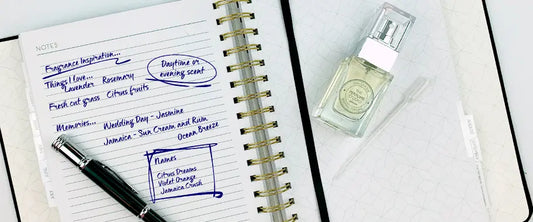 NOTES
Fragrance Inspiration...
Things I love...
Lavender Rosemary
Fresh cut grass Citrus fruits
Daytime or
evening scent
Memories... Wedding Day - Jasmine
Jamaica - Sun Cream and Rum
Ocean Breeze
Names
Citrus Dreams
Violet Orange
Jamaica Crush